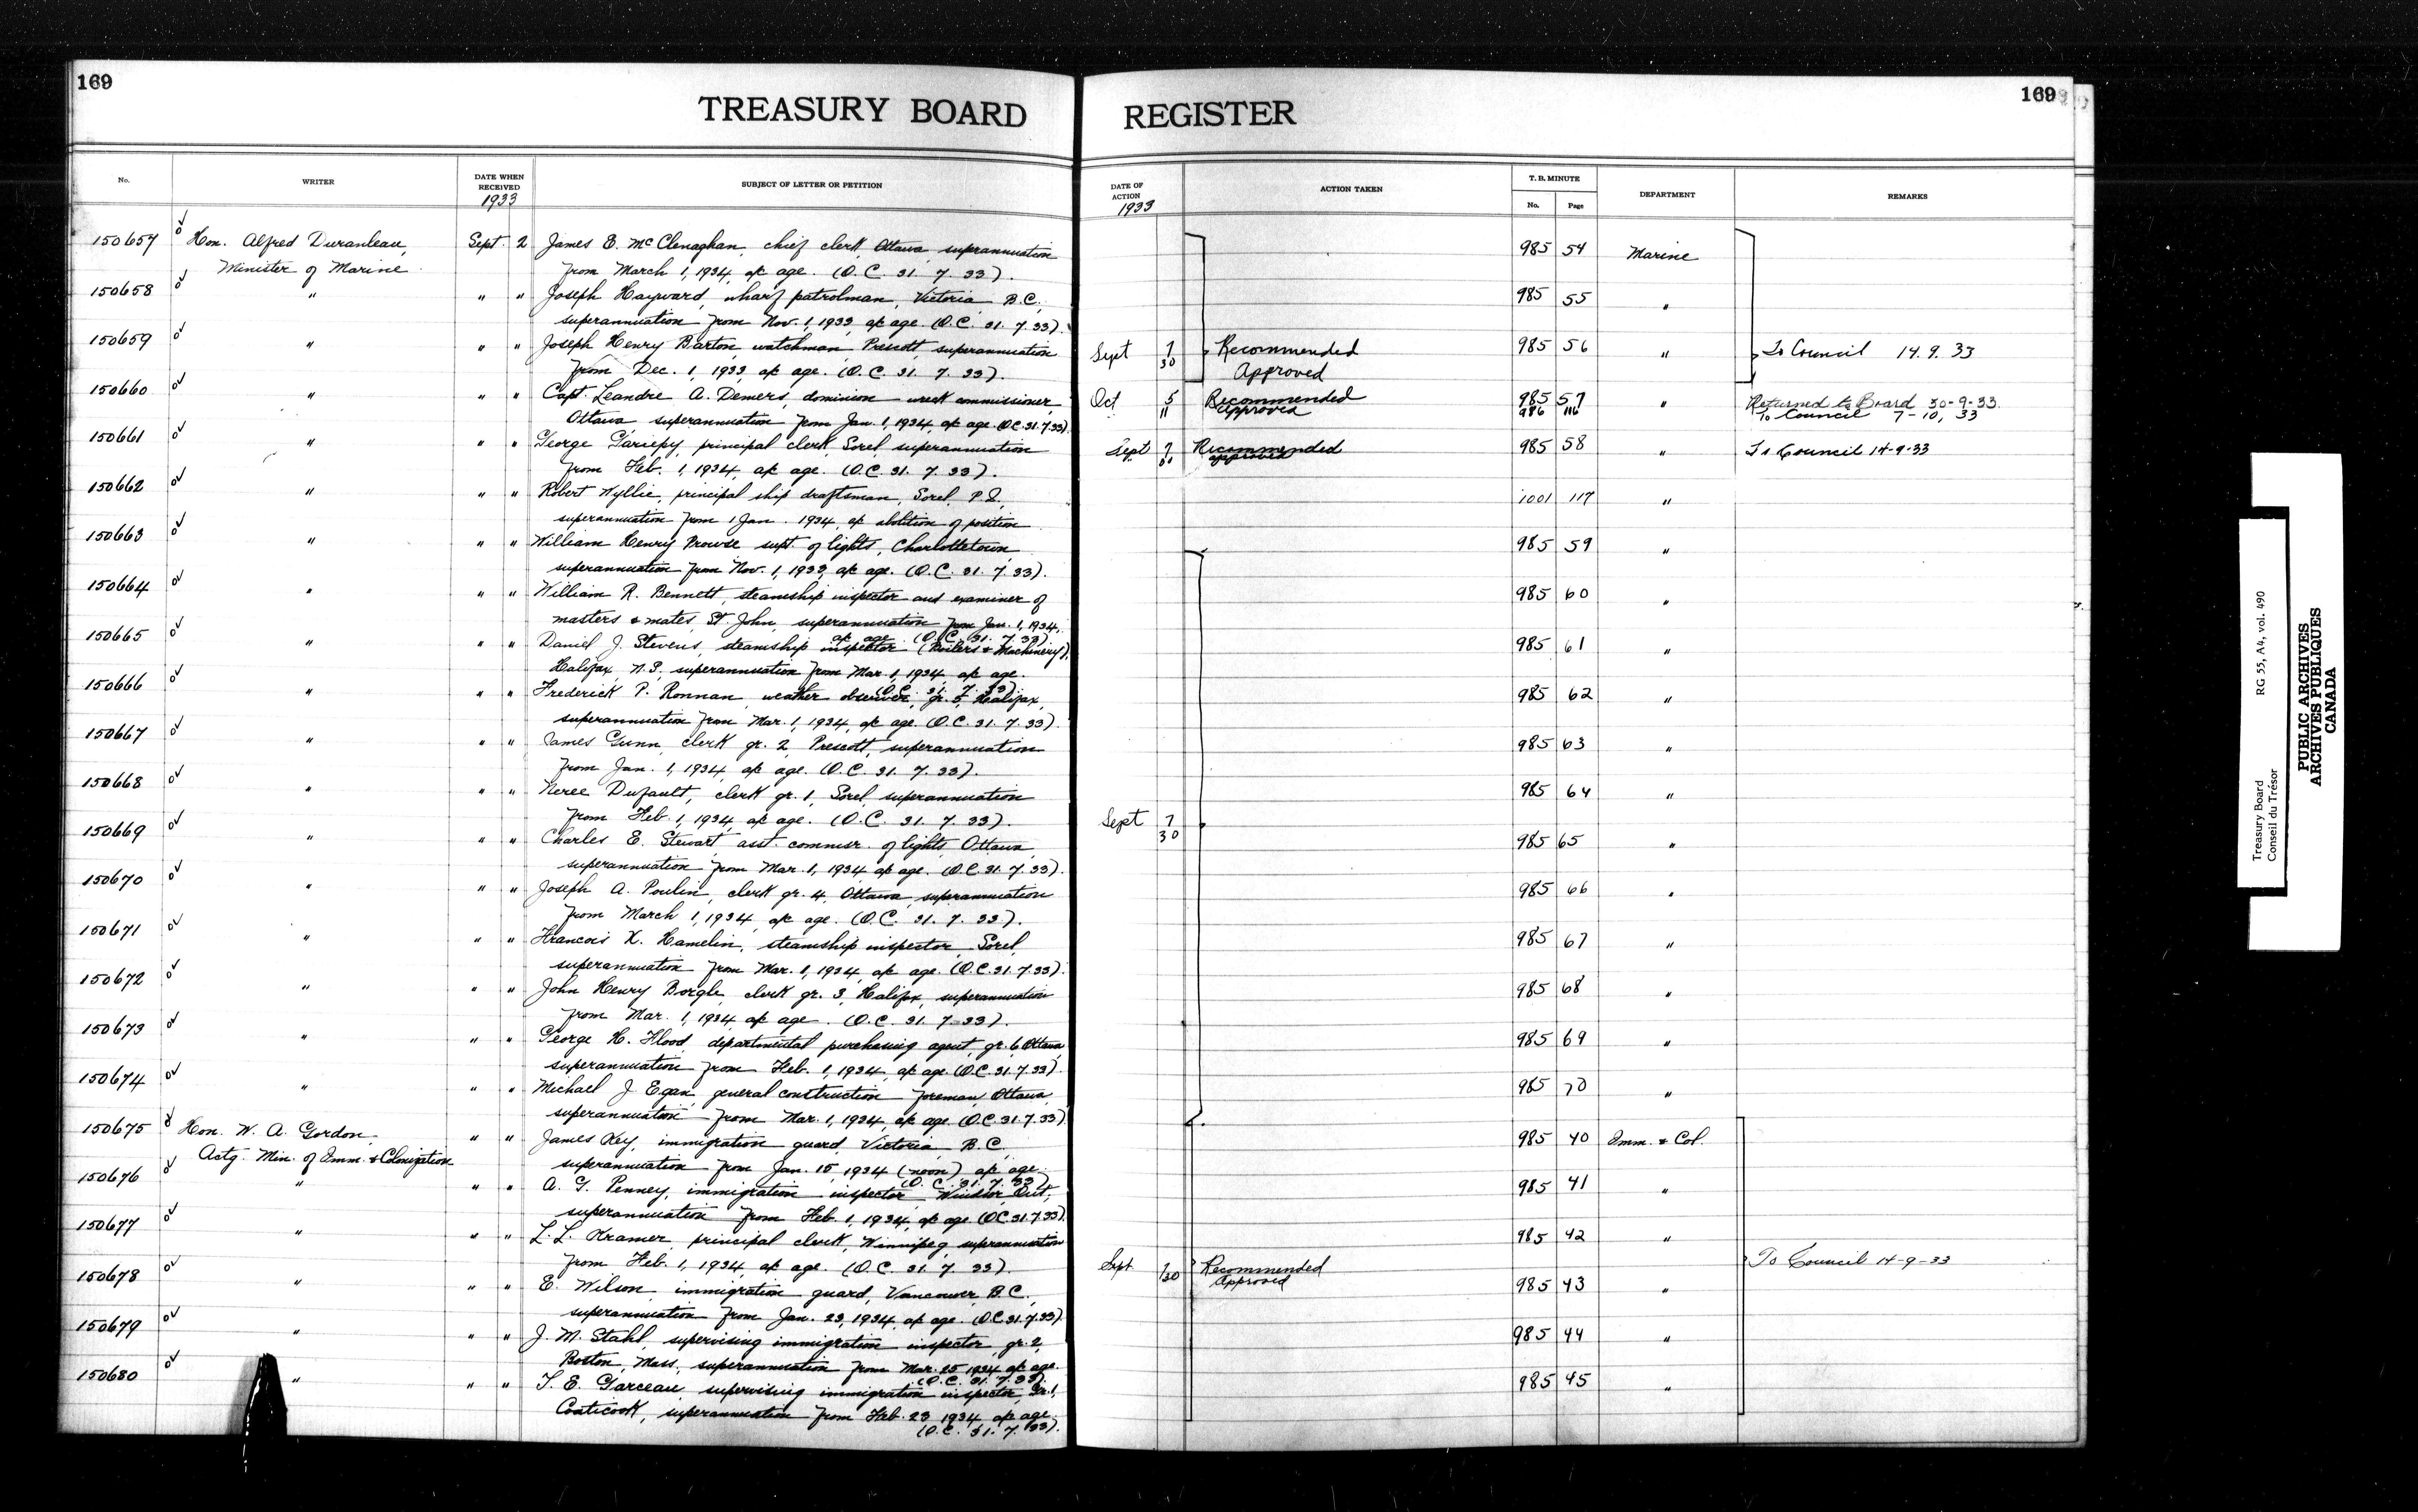 169
TREASURY BOARD
No.
WRITER
DATE WHEN RECEIVED
1933
SUBJECT OF LETTER OR PETITION
150657 Hon. Alfred Duranleau, Sept. 2 James E. McClenaghan, chief clerk, Ottawa, superannuation
Minister of Marine. from March 1, 1934, a/c age. (O.C. 31. 7. 33).
150658 " " " Joseph Hayward, wharf patrolman, Victoria B.C.,
superannuation from Nov. 1, 1933, a/c age. (O.C. 31. 7. 33).
150659 " " " Joseph Henry Barton, watchman, Prescott, superannuation
from Dec. 1, 1933, a/c age. (O.C. 31. 7. 33).
150660 " " " Capt. Leandre A. Demers, dominion wreck commissioner,
Ottawa, superannuation from Jan. 1, 1934, a/c age. (O.C. 31.7.33).
150661 " " " George Gariepy, principal clerk, Sorel, superannuation
from Feb. 1, 1934, a/c age. (O.C. 31. 7. 33).
150662 " " " Robert Wyllie, principal ship draftsman, Sorel, P.Q.,
superannuation from 1 Jan. 1934, a/c abolition of position
150663 " " " William Henry Prowse, supt. of lights, Charlottetown,
superannuation from Nov. 1, 1933, a/c age. (O.C. 31. 7. 33).
150664 " " " William R. Bennett, steamship inspector and examiner of
masters & mates, St. John, superannuation from Jan. 1, 1934,
a/c age. (O.C. 31. 7. 33)
150665 " " " Daniel J. Stevens, steamship inspector (Boilers & Machinery),
Halifax, N.S., superannuation from Mar. 1, 1934, a/c age.
(O.C. 31. 7. 33)
150666 " " " Frederick P. Ronnan, weather observer, gr. 5, Halifax,
superannuation from Mar. 1, 1934, a/c age. (O.C. 31. 7. 33).
150667 " " " James Gunn, clerk gr. 2, Prescott, superannuation
from Jan. 1, 1934, a/c age. (O.C. 31. 7. 33).
150668 " " " Neree Dufault, clerk gr. 1, Sorel, superannuation
from Feb. 1, 1934, a/c age. (O.C. 31. 7. 33).
150669 " " " Charles E. Stewart, asst. commsr. of lights, Ottawa,
superannuation from Mar. 1, 1934, a/c age. (O.C. 31. 7. 33).
150670 " " " Joseph A. Poulin, clerk gr. 4, Ottawa, superannuation
from March 1, 1934, a/c age. (O.C. 31. 7. 33).
150671 " " " Francois X. Hamelin, steamship inspector, Sorel,
superannuation from Mar. 1, 1934, a/c age. (O.C. 31. 7. 33).
150672 " " " John Henry Borgle, clerk gr. 3, Halifax, superannuation
from Mar. 1, 1934, a/c age. (O.C. 31. 7. 33).
150673 " " " George H. Flood, departmental purchasing agent, gr. 6, Ottawa
superannuation from Feb. 1, 1934, a/c age. (O.C. 31.7.33).
150674 " " " Michael J. Egan, general construction foreman, Ottawa,
superannuation from Mar. 1, 1934, a/c age. (O.C. 31.7.33).
150675 Hon. W. A. Gordon, " " James Key, immigration guard, Victoria, B.C.
Actg. Min. of Imm. & Colonization superannuation from Jan. 15, 1934 (noon) a/c age.
(O.C. 31. 7. 33)
150676 " " " A. G. Penney, immigration inspector, Windsor, Ont.,
superannuation from Feb. 1, 1934, a/c age. (O.C. 31.7.33).
150677 " " " L. L. Kramer, principal clerk, Winnipeg, superannuation
from Feb. 1, 1934 a/c age. (O.C. 31. 7. 33).
150678 " " " E. Wilson, immigration guard, Vancouver, B.C.,
superannuation from Jan. 23, 1934, a/c age. (O.C. 31.7.33).
150679 " " " J. M. Stahl, supervising immigration inspector, gr. 2,
Boston, Mass., superannuation from Mar. 25, 1934 a/c age.
(O.C. 31. 7. 33).
150680 " " " T. E. Garceau, supervising immigration inspector, Gr. 1,
Coaticook, superannuation from Feb. 23, 1934, a/c age.
(O.C. 31. 7. 33).
169
REGISTER
DATE OF ACTION
1933
ACTION TAKEN
T. B. MINUTE
No.
Page
DEPARTMENT
REMARKS
985 54 Marine
985 55 "
Sept 7 Recommended 985 56 " To Council 14. 9. 33
30 Approved
Oct 5 Recommended 985 57 " Returned to Board 30-9-33
11 Approved 986 116 To Council 7-10, 33
Sept 7 Recommended 985 58 " To Council 14-9-33
approved
1001 117 "
985 59 "
985 60 "
985 61 "
985 62 "
985 63 "
985 64 "
Sept 7
30
985 65 "
985 66 "
985 67 "
985 68 "
985 69 "
985 70 "
985 40 Imm. & Col.
985 41 "
985 42 "
Sept. 7/30 Recommended To Council 14-9-33
Approved
985 43 "
985 44 "
985 45 "
Treasury Board RG 55, A4, vol. 490
Conseil du Trésor
PUBLIC ARCHIVES
ARCHIVES PUBLIQUES
CANADA